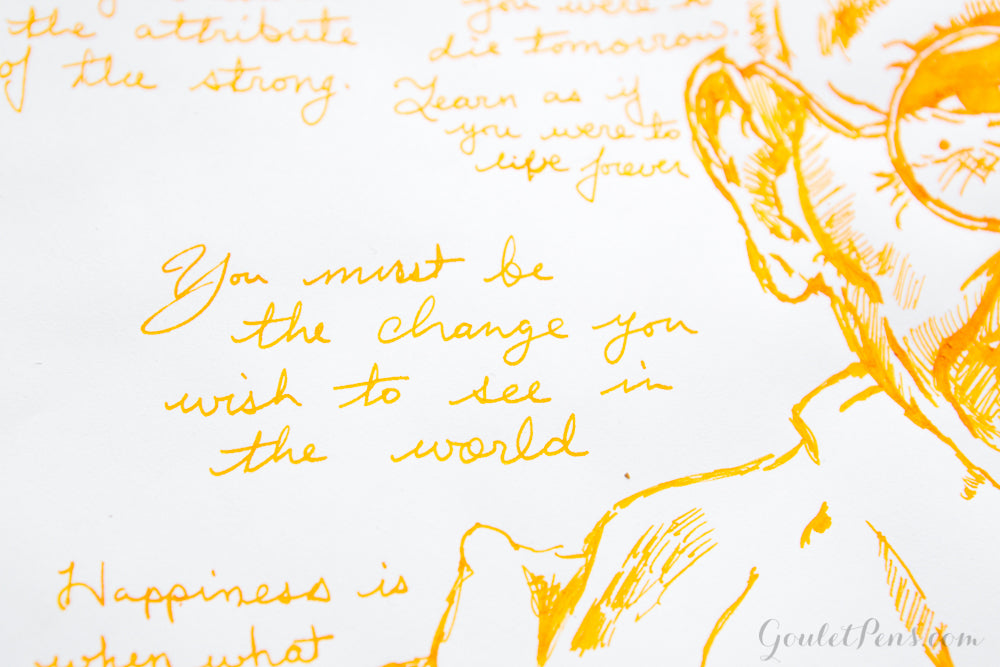 the attribute
of the strong.
you were to
die tomorrow.
Learn as if
you were to
live forever
You must be
the change you
wish to see in
the world
Happiness is
when what
GouletPens.com